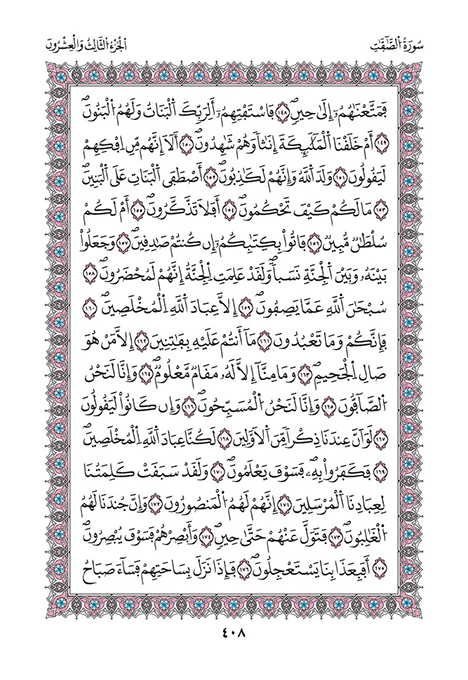 سُورَةُ الصَّٰٓفَّٰتِ
الجُزْءُ الثَّالِثُ وَالْعِشْرُونَ
فَمَتَّعْنَٰهُمُۥٓ إِلَىٰ حِينٖۖ ١٤٨ فَاسْتَفْتِهِمُۥٓ أَلِرَبِّكَ اَلْبَنَاتُ وَلَهُمُ اُلْبَنُونَۖ
١٤٩ أَمْ خَلَقْنَا اَلْمَلَٰٓئِكَةَ إِنَٰثاٗ وَهُمْ شَٰهِدُونَۖ ١٥٠ أَلَآ إِنَّهُم مِّنِ اِفْكِهِمْ
لَيَقُولُونَۖ ١٥١ وَلَدَ اَللَّهُ وَإِنَّهُمْ لَكَٰذِبُونَۖ ١٥٢ أَصْطَفَى اَلْبَنَاتِ عَلَى اَلْبَنِينَۖ
١٥٣ مَا لَكُمْ كَيْفَ تَحْكُمُونَۖ ١٥٤ أَفَلَا تَذَّكَّرُونَۖ ١٥٥ أَمْ لَكُمْ
سُلْطَٰنٞ مُّبِينٞۖ ١٥٦ فَاتُواْ بِكِتَٰبِكُمُۥٓ إِن كُنتُمْ صَٰدِقِينَۖ ١٥٧ وَجَعَلُواْ
بَيْنَهُۥ وَبَيْنَ اَلْجِنَّةِ نَسَباٗۖ وَلَقَدْ عَلِمَتِ اِلْجِنَّةُ إِنَّهُمْ لَمُحْضَرُونَۖ ١٥٨
سُبْحَٰنَ اَللَّهِ عَمَّا يَصِفُونَ ١٥٩ إِلَّا عِبَادَ اَللَّهِ اِلْمُخْلَصِينَۖ ١٦٠
فَإِنَّكُمْ وَمَا تَعْبُدُونَ ١٦١ مَآ أَنتُمْ عَلَيْهِ بِفَٰتِنِينَ ١٦٢ إِلَّا مَنْ هُوَ
صَالِ اِلْجَحِيمِۖ ١٦٣ وَمَا مِنَّآ إِلَّا لَهُۥ مَقَامٞ مَّعْلُومٞۖ ١٦٤ وَإِنَّا لَنَحْنُ
اُلصَّآفُّونَۖ ١٦٥ وَإِنَّا لَنَحْنُ اُلْمُسَبِّحُونَۖ ١٦٦ وَإِن كَانُواْ لَيَقُولُونَ
١٦٧ لَوْ أَنَّ عِندَنَا ذِكْراٗ مِّنَ اَلْأَوَّلِينَ ١٦٨ لَكُنَّا عِبَادَ اَللَّهِ اِلْمُخْلَصِينَۖ
١٦٩ فَكَفَرُواْ بِهِۦ فَسَوْفَ يَعْلَمُونَۖ ١٧٠ وَلَقَدْ سَبَقَتْ كَلِمَتُنَا
لِعِبَادِنَا اَلْمُرْسَلِينَ ١٧١ إِنَّهُمْ لَهُمُ اُلْمَنصُورُونَ ١٧٢ وَإِنَّ جُندَنَا لَهُمُ
اُلْغَٰلِبُونَۖ ١٧٣ فَتَوَلَّ عَنْهُمْ حَتَّىٰ حِينٖۖ ١٧٤ وَأَبْصِرْهُمْ فَسَوْفَ يُبْصِرُونَۖ
١٧٥ أَفَبِعَذَابِنَا يَسْتَعْجِلُونَۖ ١٧٦ فَإِذَا نَزَلَ بِسَاحَتِهِمْ فَسَآءَ صَبَاحُ
٤٠٨